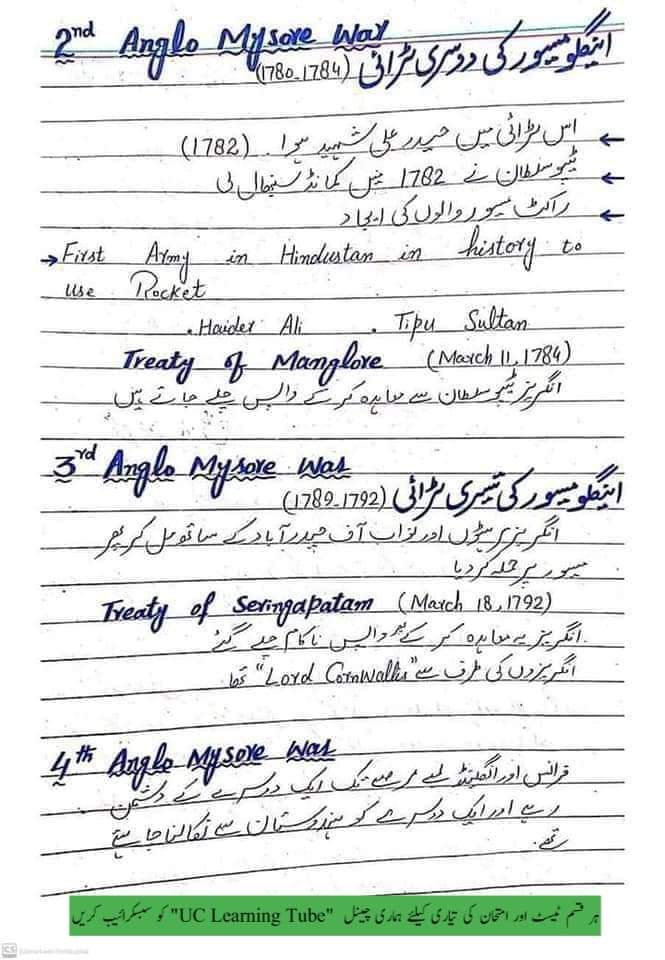 2nd Anglo Mysore War
اینگلو میسور کی دوسری لڑائی (1780-1784)
← اس لڑائی میں حیدر علی شہید ہوا۔ (1782)
← ٹیپو سلطان نے 1782 میں کمانڈ سنبھال لی
← راکٹ میسور والوں کی ایجاد
→ First Army in Hindustan in history to
use Rocket
. Haider Ali . Tipu Sultan
Treaty of Manglore (March 11, 1784)
انگریز ٹیپو سلطان سے معاہدہ کر کے واپس چلے جاتے ہیں
3rd Anglo Mysore War
اینگلو میسور کی تیسری لڑائی (1789-1792)
انگریز مرہٹوں اور نواب آف حیدرآباد کے ساتھ مل کر پھر
میسور پر حملہ کر دیا
Treaty of Seringapatam (March 18, 1792)
انگریز یہ معاہدہ کر کے پھر واپس ناکام چلے گئے
انگریزوں کی طرف سے "Lord Cornwallis" تھا
4th Anglo Mysore War
فرانس اور انگلینڈ لمبے عرصے تک ایک دوسرے کے دشمن
رہے اور ایک دوسرے کو ہندوستان سے نکالنا چاہتے
تھے۔
ہر قسم ٹیسٹ اور امتحان کی تیاری کیلئے ہماری چینل "UC Learning Tube" کو سبسکرائیب کریں
CS